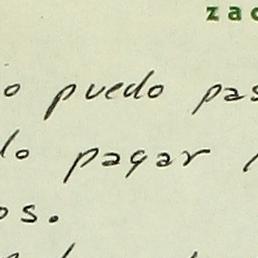 zac
o puedo pas
lo pagar
os.